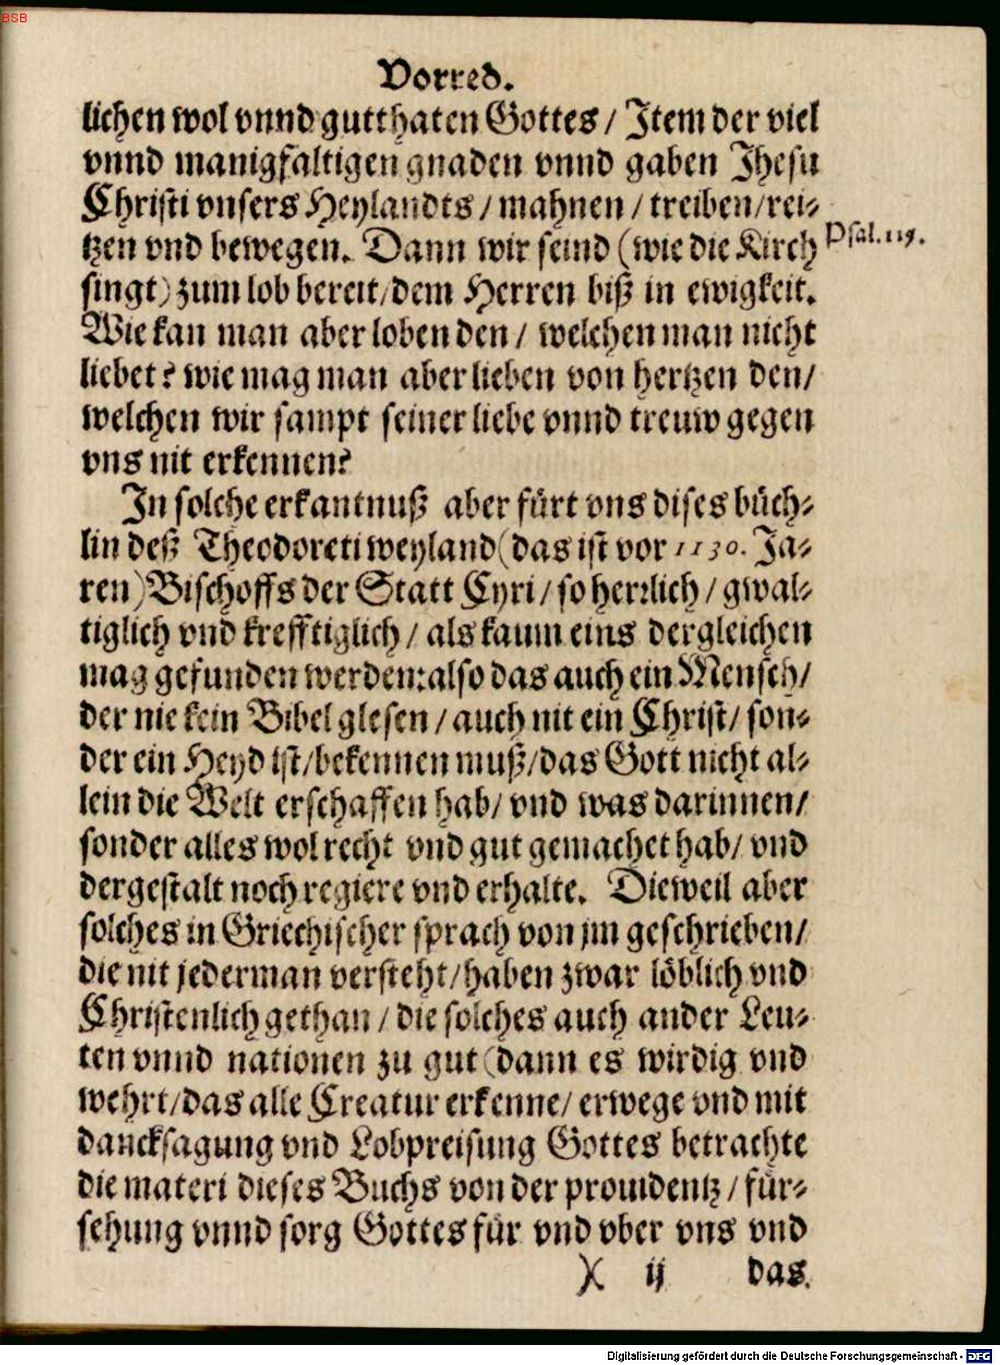 BSB
Vorred.
lichen wol vnnd gutthaten Gottes / Item der viel
vnnd manigfaltigen gnaden vnnd gaben Jhesu
Christi vnsers Heylandts / mahnen / treiben / rei⸗
tzen vnd bewegen. Dann wir seind (wie die Kirch
Psal. 119.
singt) zum lob bereit / dem Herren biß in ewigkeit.
Wie kan man aber loben den / welchen man nicht
liebet? wie mag man aber lieben von hertzen den /
welchen wir sampt seiner liebe vnnd treuw gegen
vns nit erkennen?
In solche erkantnuß aber fürt vns dises büch⸗
lin deß Theodoreti weyland (das ist vor 1130. Ja⸗
ren) Bischoffs der Statt Cyri / so herrlich / gwal⸗
tiglich vnd krefftiglich / als kaum eins dergleichen
mag gefunden werden: also das auch ein Mensch /
der nie kein Bibel glesen / auch nit ein Christ / son⸗
der ein Heyd ist / bekennen muß / das Gott nicht al⸗
lein die Welt erschaffen hab / vnd was darinnen /
sonder alles wol recht vnd gut gemachet hab / vnd
dergestalt noch regiere vnd erhalte. Dieweil aber
solches in Griechischer sprach von jm geschrieben /
die nit jederman versteht / haben zwar löblich vnd
Christenlich gethan / die solches auch ander Leu⸗
ten vnnd nationen zu gut (dann es wirdig vnd
wehrt / das alle Creatur erkenne / erwege vnd mit
dancksagung vnd Lobpreisung Gottes betrachte
die materi dieses Buchs von der prouidentz / für⸗
sehung vnnd sorg Gottes für vnd vber vns vnd
)( ij das
Digitalisierung gefördert durch die Deutsche Forschungsgemeinschaft - DFG